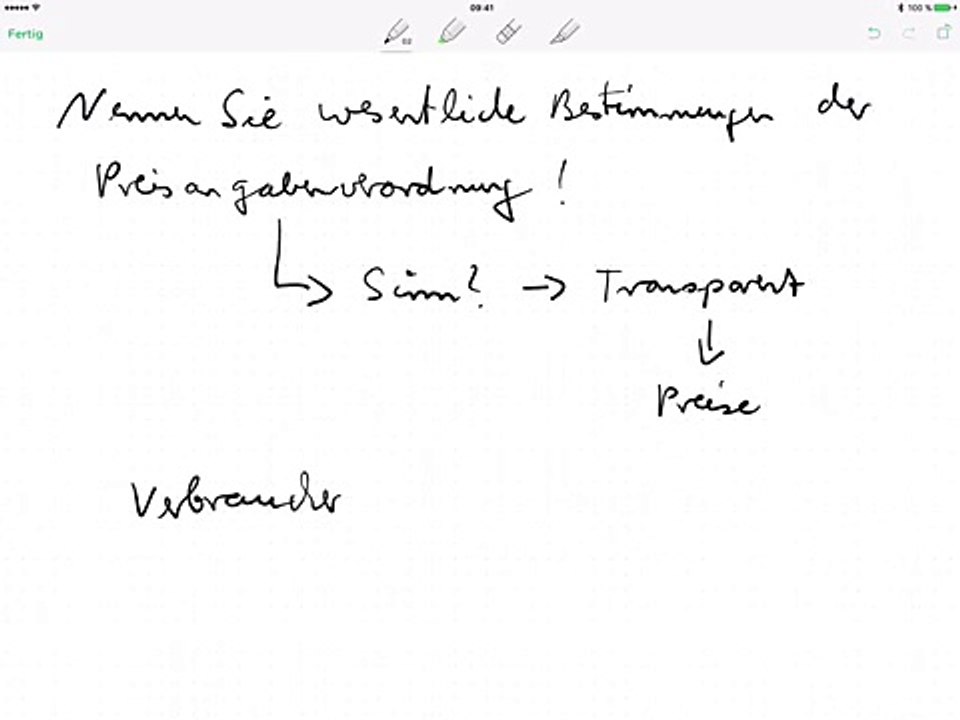 09:41
100 %
Fertig
02
Nennen Sie wesentliche Bestimmungen der
Preisangabenverordnung !
Sinn? → Transparent
↓
Preise
Verbraucher